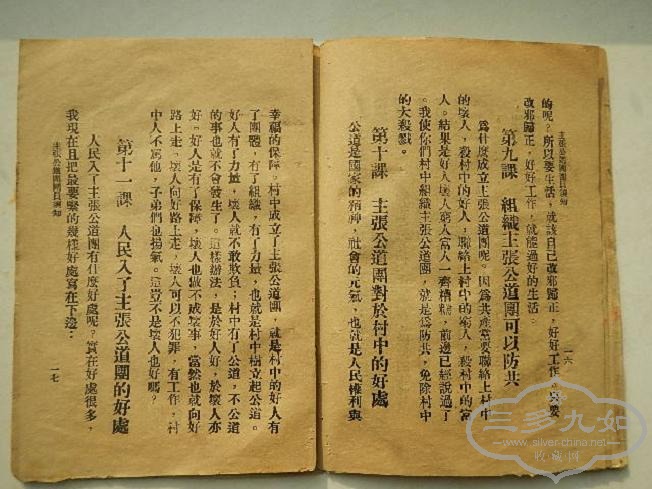 主張公道團團員須知
一六
的呢?所以要生活,就該自己改邪歸正,好好工作。只要
改邪歸正,好好工作,就能過好的生活。
第九課 組織主張公道團可以防共
爲什麽成立主張公道團呢。因爲共產黨要聯絡上村中
的壞人,殺村中的好人,聯絡上村中的窮人,殺村中的富
人。結果是好人壞人窮人富人一齊糟糕,前邊已經說過了
。我使你們村中組織主張公道團,就是爲防共,免除村中
的大殺戮。
第十課 主張公道團對於村中的好處
公道是國家的精神,社會的元氣,也就是人民權利與
幸福的保障。村中成立了主張公道團,就是村中的好人有
了團體,有了組織,有了力量,也就是村中樹立起公道。
好人有了力量,壞人就不敢欺負;村中有了公道,不公道
的事也就不會發生了。這樣辦法,是於好人好,於壞人亦
好。好人是有了保障,壞人也做不成壞事,當然也就向好
路上走,壞人向好路上走,壞人可以不犯罪,有工作,村
中人不罵他,子弟們也揚氣。這豈不是壞人也好嗎?
第十一課 人民入了主張公道團的好處
人民入了主張公道團有什麽好處呢?實在好處很多,
我現在且把最要緊的幾樣好處寫在下邊:
主張公道團團員須知
一七
三多九如
www.silver-china.net
收藏网